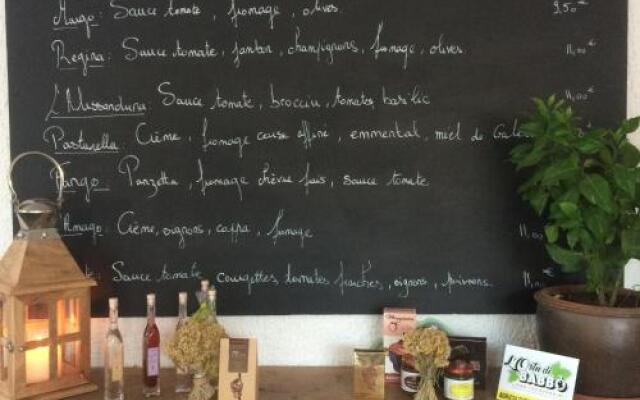 Margo: Sauce tomate, fromage, olives. 9,50€
Regina: Sauce tomate, jambon, champignons, fromage, olives. 11,00€
L'Alessandura: Sauce tomate, brocciu, tomates, basilic 11,00€
Pasturella: Crème, fromage corse affiné, emmental, miel de
Panzetta, fromage chèvre frais, sauce tomate
Amago: Crème, oignons, coppa, fromage 11,00
Sauce tomate, courgettes, tomates fraîches, oignons, poivrons. 11,00
L'Ortu di
BABBÒ